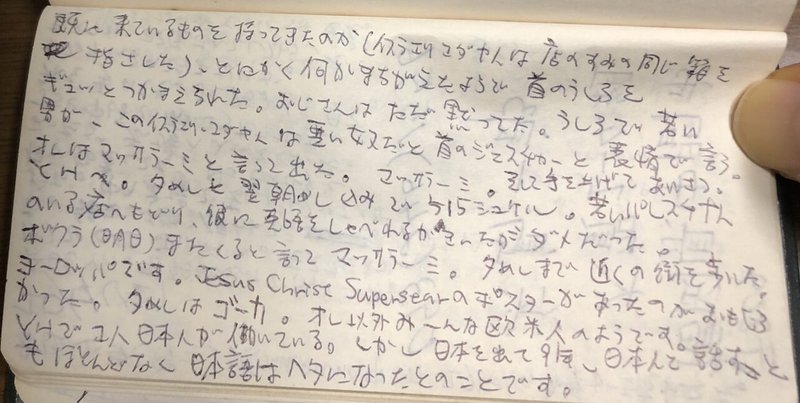 既に来ているものを持ってきたのか(イスラエリ・ユダヤんは店のすみの同じ箱を
指さした)、とにかく何かまちがえたようで首のうしろを
ギュッとつかまえられた。おじさんはただ黙ってた。うしろで若い
男が、このイスラエリ・ユダヤんは悪い奴だと首のジェスチャーと表情で言う。
オレはマッサラーミと言って出た。マッサラーミ。そして手を上げてあいさつ。
YHへ。夕めしと翌朝めし込みで515シュケル。若いパレスチナん
のいる店へもどり、彼に英語をしゃべれるかきいたがダメだった。
ボクラ(明日)またくると言ってマッサラーミ。夕めしまで近くの街を歩いた。
ヨーロッパです。Jesus Christ Superstarのポスターがあったのがおもしろ
かった。夕めしはゴーカ。オレ以外み〜んな欧米人のようです。
YHで1人日本人が働いている。しかし日本を出て9年、日本人と話すこと
もほとんどなく日本語はヘタになったとのことです。